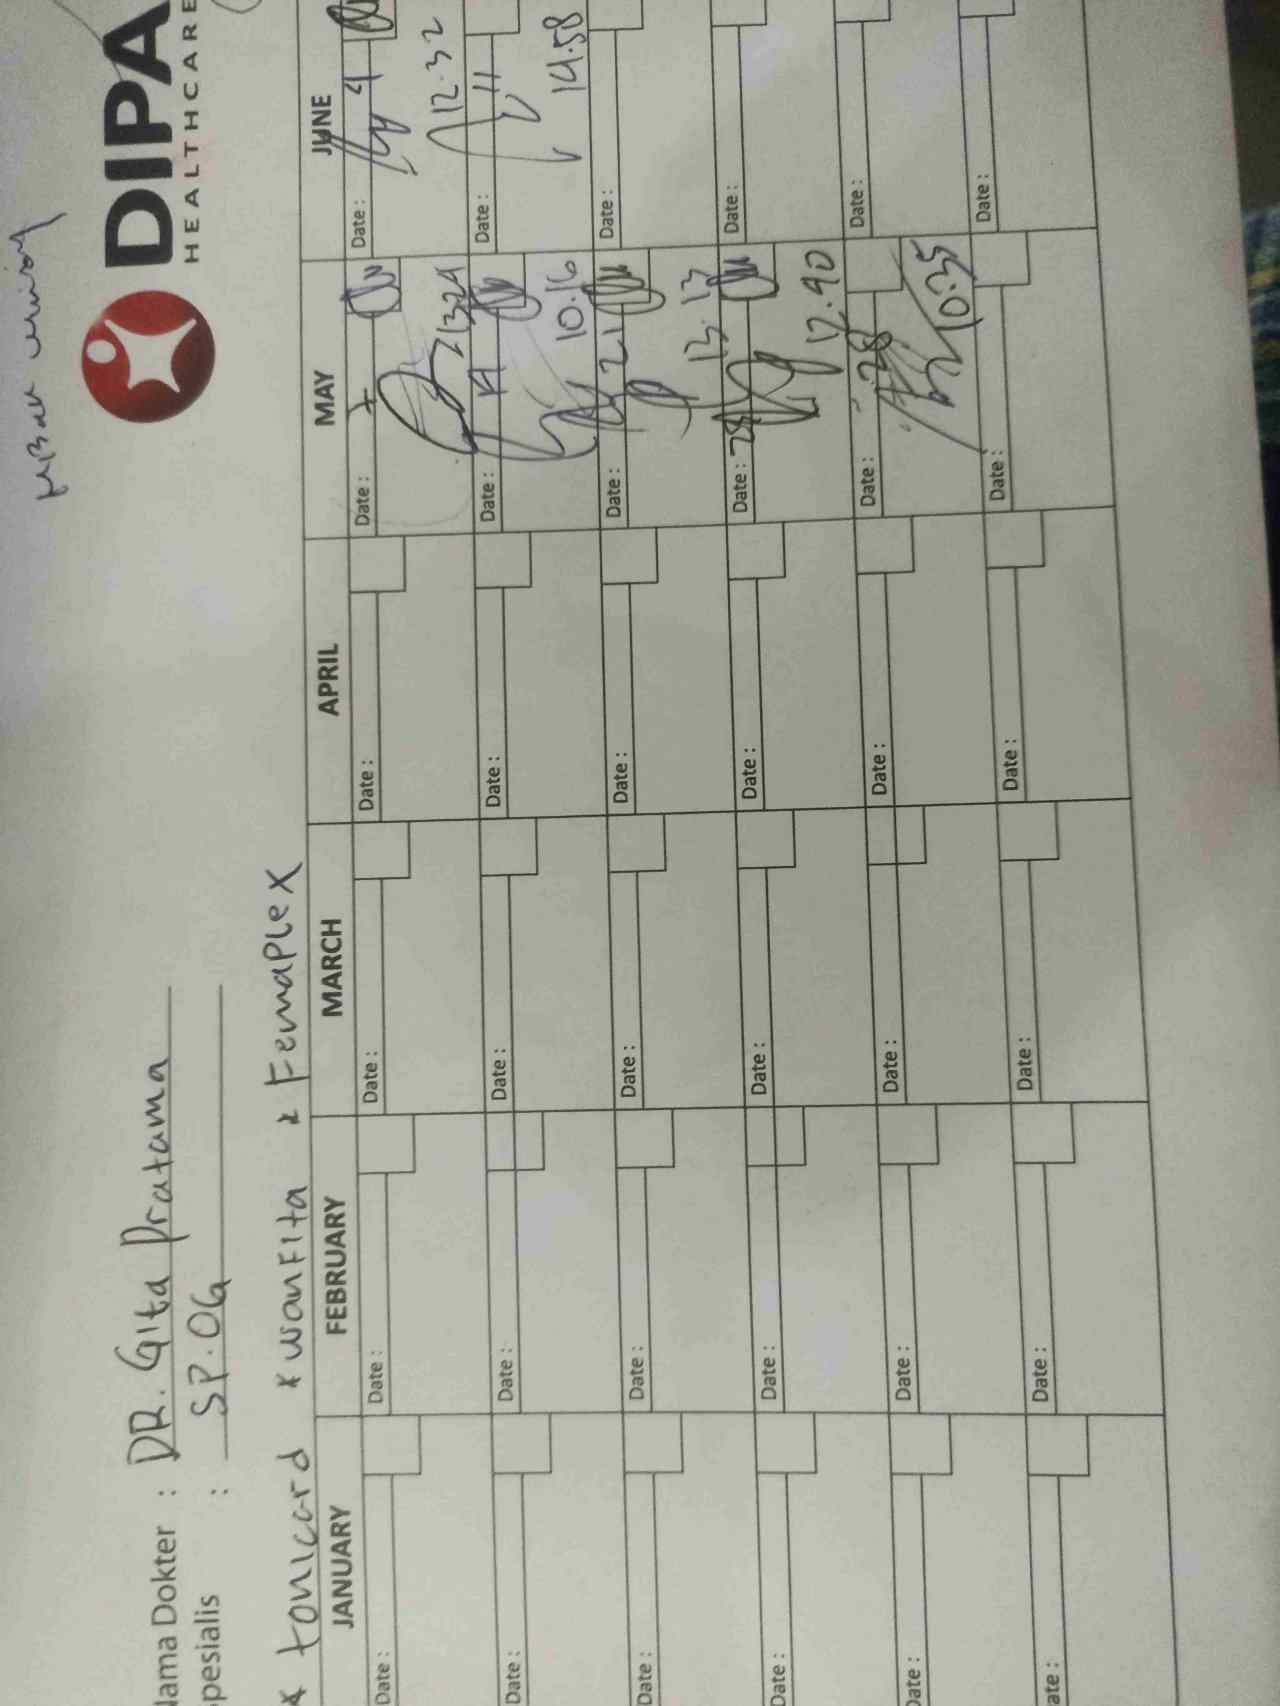 DIPA
HEALTHCARE
Nama Dokter : DR. Gita Pratama
Spesialis : SP.OG
* tonicard * wanFita * FemaPlex
JANUARY FEBRUARY MARCH APRIL MAY JUNE
Date : Date : Date : Date : Date : 7 Date : 4
13.29 12.32
Date : Date : Date : Date : Date : 14 Date : 11
10.16 14.58
Date : Date : Date : Date : Date : 21 Date :
13.13
Date : Date : Date : Date : Date : 28 Date :
12.40
Date : Date : Date : Date : Date : 28 Date :
10.35
Date : Date : Date : Date : Date : Date :